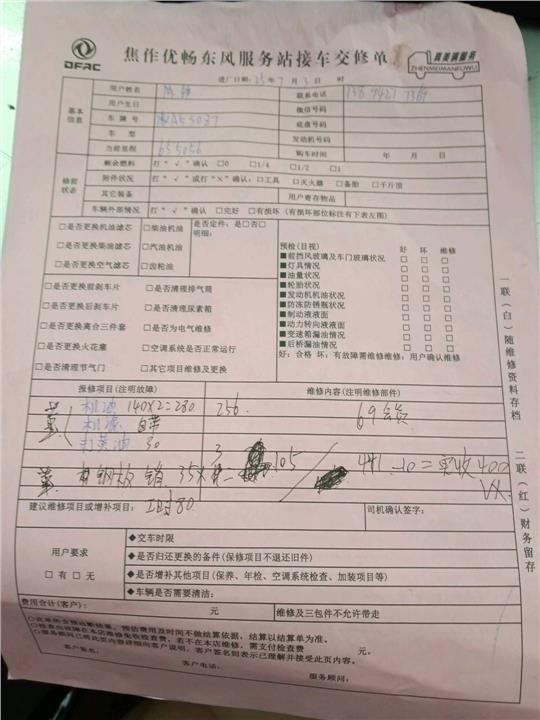 DFAC
焦作优畅东风服务站接车交修单
真美满服务
ZHENMEIMANFUWU
进厂日期：25年7月3日 时
基本信息
用户姓名 联系电话
用户生日 微信号码
车牌号 底盘号码
车型 发动机号码
当前里程 655056 购车时间 年 月 日
修前状态
剩余燃料 打“√”确认 □0 □1/4 □1/2 □1
附件状况 打“√”或打“×”确认：□工具 □灭火器 □备胎 □千斤顶
其它装备 用户寄存物品
车辆外部情况 打“√”确认 □完好 □有损坏（有损坏部位标注有下表左图）
□是否更换机油滤芯 □柴油机油 是否定件：是□否□
明细：
□是否更换柴油滤芯 □汽油机油
□是否更换空气滤芯 □齿轮油
□是否更换前刹车片 □是否清理排气筒
□是否更换后刹车片 □是否清理尿素箱
□是否更换离合三件套 □是否为电气维修
□是否更换火花塞 □空调系统是否正常运行
□是否清理节气门 □其它项目维修及更换
预检(目视) 好 坏 维修
■前挡风玻璃及车门玻璃状况 □ □ □
■灯具情况 □ □ □
■油量状况 □ □ □
■轮胎状况 □ □ □
■发动机机油状况 □ □ □
■防冻防锈瓶状况 □ □ □
■制动液液面 □ □ □
■动力转向液液面 □ □ □
■变速箱漏油情况 □ □ □
■后桥漏油情况 □ □ □
好：合格 坏：有故障需维修维修：用户确认维修
报修项目(注明故障) 维修内容(注明维修部件)
机油 140×2=280 256.
机滤 自带
打黄油 30
钢板销 35× 3 = 105 441.10=实收400
建议维修项目或增补项目： 工时80 司机确认签字：
用户要求
□有 □无
◆交车时限
◆是否归还更换的备件(保修项目不退还旧件)
◆是否增补其他项目(保养、年检、空调系统检查、加装项目等)
◆车辆是否需要清洁：
费用合计(客户)： 元 维修及三包件不允许带走
□此单的含预诊断结果，预估费用及时间不做结算依据，结算以结算单为准。
□检查出故障在本店维修免收检查费；若不在本店维修，需支付检查费 元。
□服务顾问已将此页内容详细向客户说明，客户签名则表示已理解并接受此页内容。
客户签名： 客户电话： 服务顾问：
一联（白）随维修资料存档
二联（红）财务留存